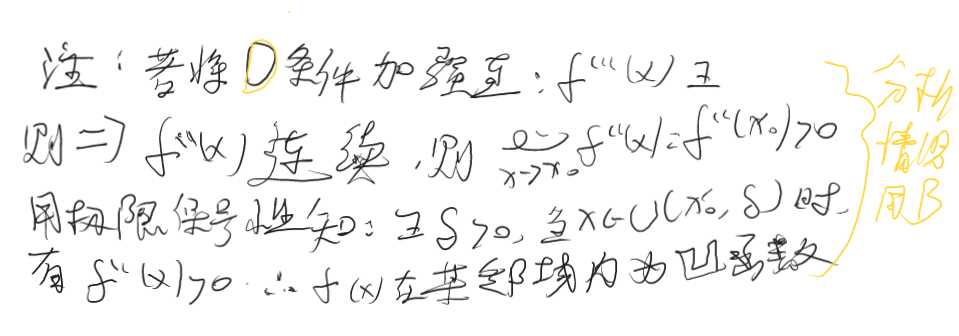 注：若将D条件加强至：f'''(x)∃
则⇒f''(x)连续，则 lim x→x₀ f''(x)=f''(x₀)>0
用极限保号性知：∃δ>0，当x∈U(x₀，δ)时，
有f''(x)>0 ∴f(x)在某邻域内为凹函数
分析
情况
用B